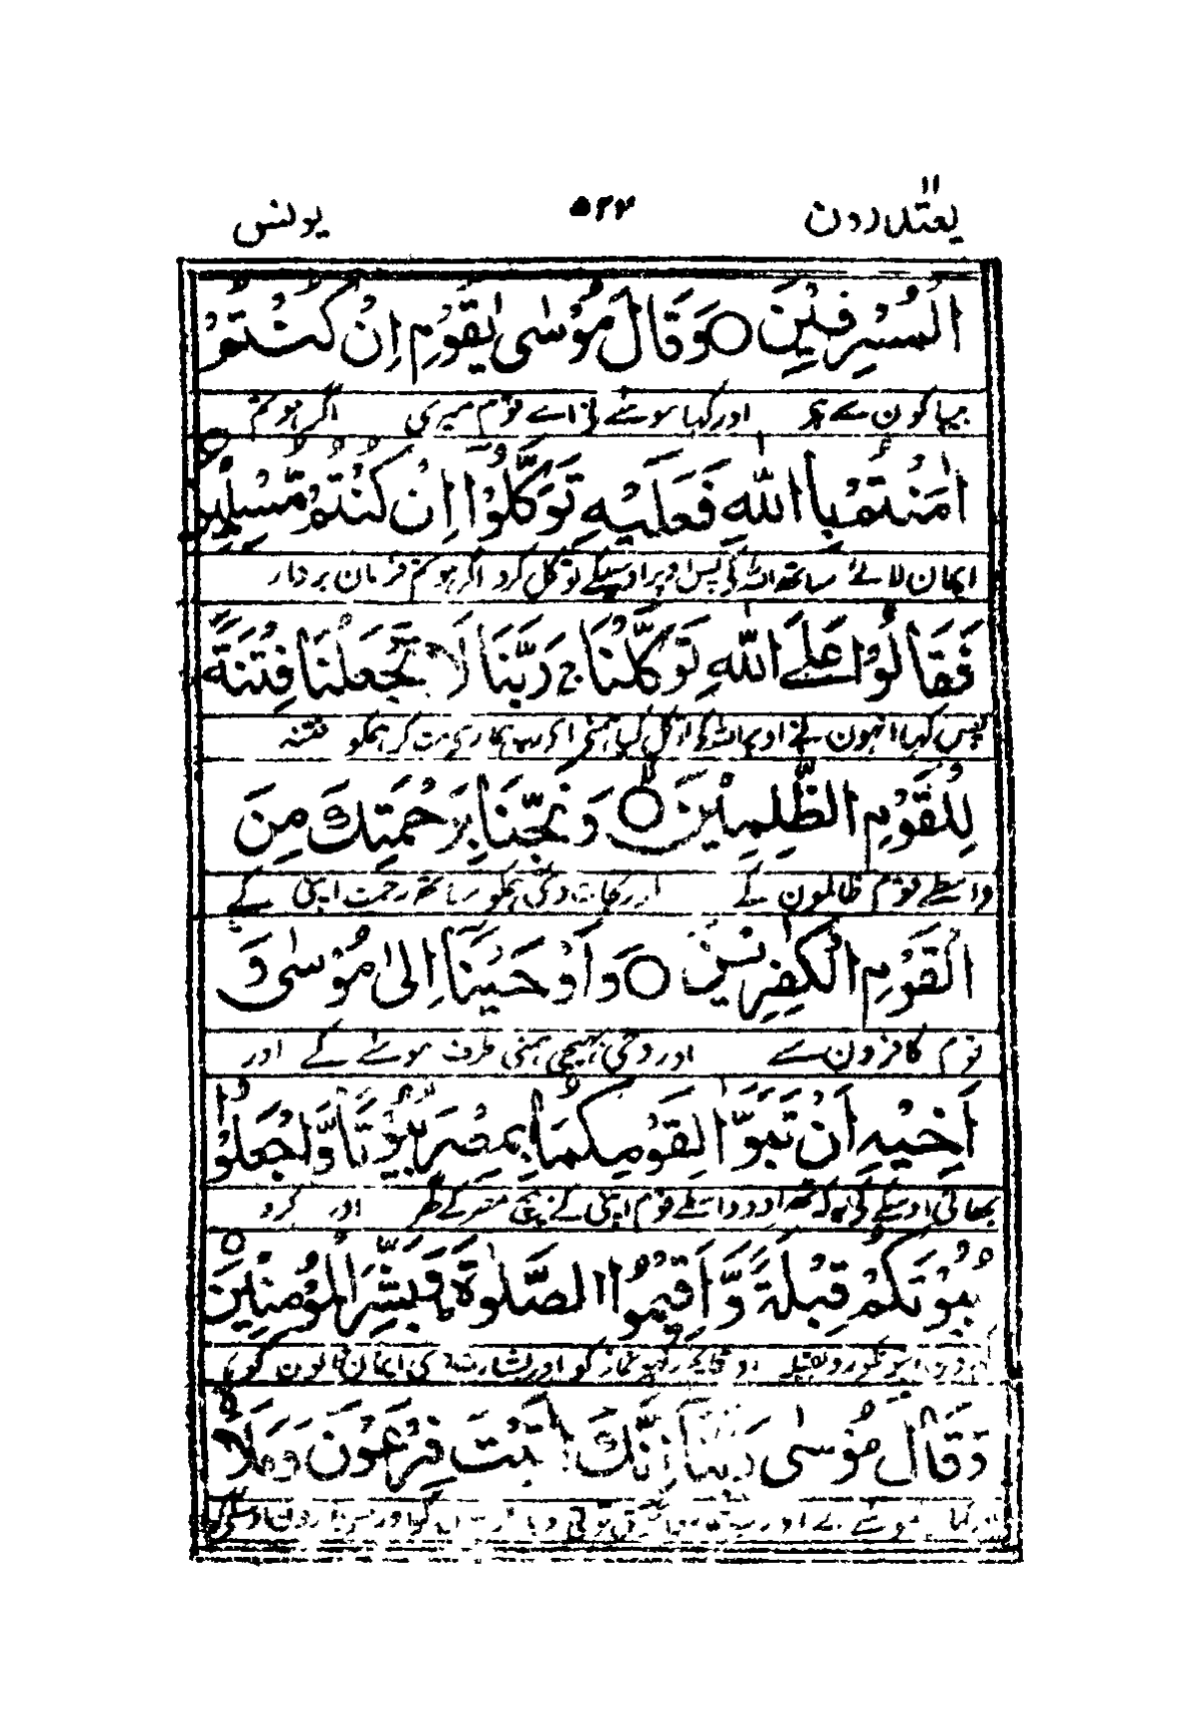 یعتذرون ۱۱ ۵۲۷ یونس
الْمُسْرِفِيْنَ ○ وَقَالَ مُوْسٰى يٰقَوْمِ اِنْ كُنْتُمْ
بیجا کون سے ہی اور کہا موسٰے نے اے قوم میری اگر ہو تم
اٰمَنْتُمْ بِاللّٰهِ فَعَلَيْهِ تَوَكَّلُوْٓا اِنْ كُنْتُمْ مُّسْلِمِيْنَ
ایمان لائے ساتھ اللہ کی پس اوپر اوسیکے توکل کرو اگر ہو تم فرمان بردار
فَقَالُوْا عَلَى اللّٰهِ تَوَكَّلْنَا ج رَبَّنَا لَا تَجْعَلْنَا فِتْنَةً
پس کہا انہون نے اوپر اللہ کی توکل کیا ہمنی اے رب ہماری مت کر ہمکو فتنہ
لِّلْقَوْمِ الظّٰلِمِيْنَ ○ وَنَجِّنَا بِرَحْمَتِكَ مِنَ
واسطے قوم ظالمون کے اور نجات دی ہمکو ساتھ رحمت اپنی کے
الْقَوْمِ الْكٰفِرِيْنَ ○ وَاَوْحَيْنَآ اِلٰى مُوْسٰى وَ
قوم کافرون سے اور وحی بھیجی ہمنی طرف موسٰے کے اور
اَخِيْهِ اَنْ تَبَوَّاٰ لِقَوْمِكُمَا بِمِصْرَ بُيُوْتًا وَّاجْعَلُوْا
بھائی اوسکے کی یہ کہ جگہ دو واسطے قوم اپنی کے بیچ مصر کے گھر اور کرو
بُيُوْتَكُمْ قِبْلَةً وَّاَقِيْمُوا الصَّلٰوةَ ط وَبَشِّرِ الْمُؤْمِنِيْنَ ○
گھرون اپنو کو رو بقبلہ اور قایم رکھو نماز کو اور بشارت دی ایمان والون کو
وَقَالَ مُوْسٰى رَبَّنَآ اِنَّكَ اٰتَيْتَ فِرْعَوْنَ وَمَلَاَهٗ
اور کہا موسٰے نے اے رب تحقیق تونی دیا فرعون کو اور سردارون اوسکی کو